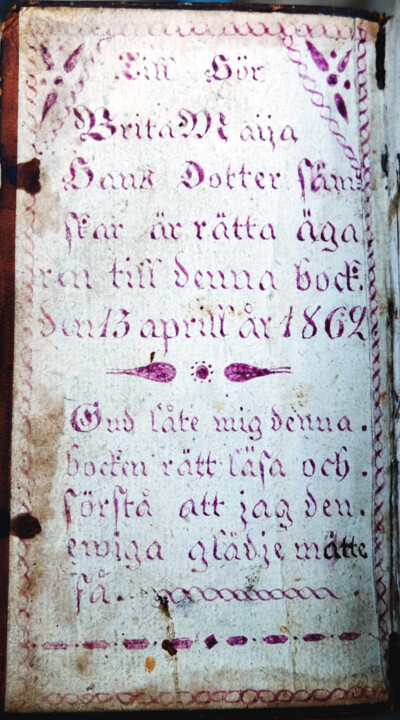 Till Hör
Brita Maija
Hans Dotter säm=
skar är rätta äga
ren till denna bock.
den 13 aprill år 1862
Gud låte mig denna.
bocken rätt läsa och.
förstå att jag den.
ewiga glädje måtte
få.